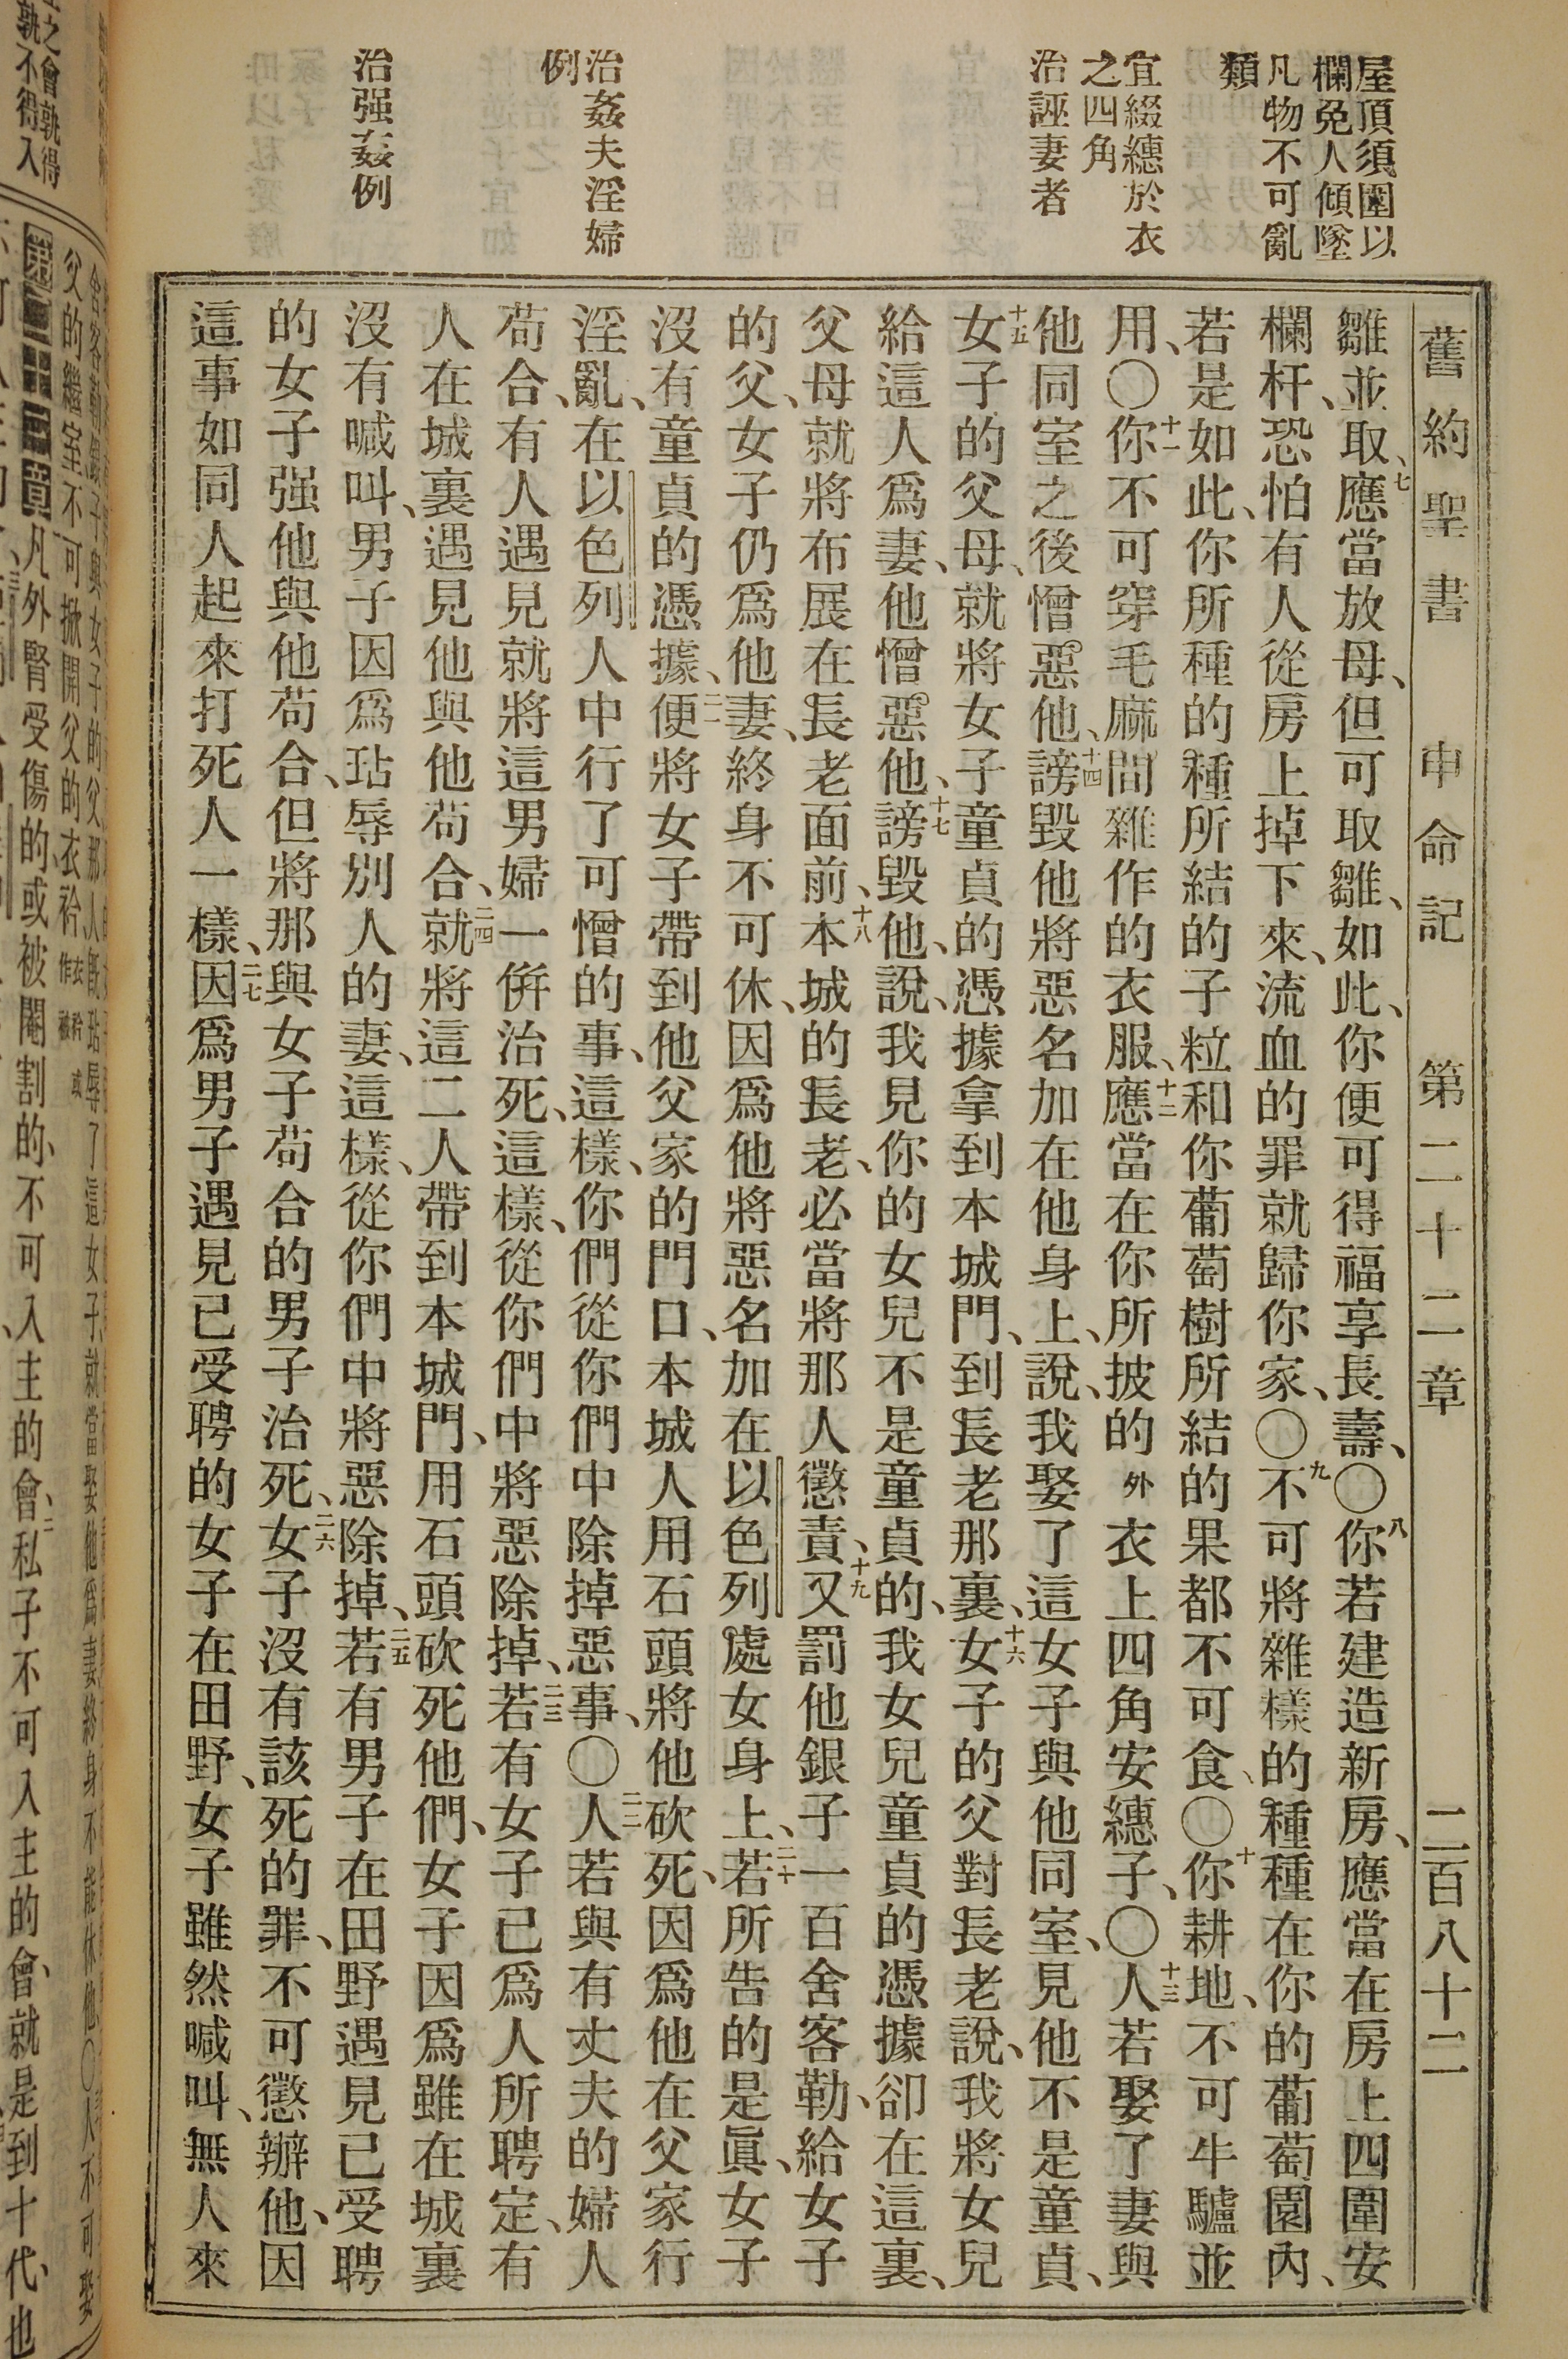 屋頂須圍以
欄免人傾墜
凡物不可亂
類
宜綴繐於衣
之四角
治誣妻者
治姦夫淫婦
例
治强姦例
舊約聖書 申命記 第二十二章 二百八十二
雛並取、七應當放母、但可取雛、如此、你便可得福享長壽、〇八你若建造新房、應當在房上四圍安
欄杆、恐怕有人從房上掉下來、流血的罪就歸你家、〇九不可將雜樣的種種在你的葡萄園內、
若是如此、你所種的種所結的子粒和你葡萄樹所結的果都不可食、〇十你耕地、不可牛驢並
用、〇十一你不可穿毛麻間雜作的衣服、十二應當在你所披的外衣上四角安繐子、〇十三人若娶了妻與
他同室之後憎惡他、十四謗毀他將惡名加在他身上、說、我娶了這女子與他同室、見他不是童貞、
十五女子的父母、就將女子童貞的憑據拿到本城門、到長老那裏、十六女子的父對長老說、我將女兒
給這人爲妻、他憎惡他、十七謗毀他、說、我見你的女兒不是童貞的、我女兒童貞的憑據卻在這裏、
父母就將布展在長老面前、十八本城的長老、必當將那人懲責、十九又罰他銀子一百舍客勒、給女子
的父、女子仍爲他妻、終身不可休、因爲他將惡名加在以色列處女身上、二十若所告的是眞、女子
沒有童貞的憑據、二一便將女子帶到他父家的門口、本城人用石頭將他砍死、因爲他在父家行
淫亂、在以色列人中行了可憎的事、這樣、你們從你們中除掉惡事、〇二二人若與有丈夫的婦人
苟合、有人遇見就將這男婦一倂治死、這樣、從你們中將惡除掉、二三若有女子已爲人所聘定、有
人在城裏遇見他與他苟合、二四就將這二人帶到本城門、用石頭砍死他們、女子因爲雖在城裏
沒有喊叫、男子因爲玷辱別人的妻、這樣、從你們中將惡除掉、二五若有男子在田野遇見已受聘
的女子强他與他苟合、但將那與女子苟合的男子治死、二六女子沒有該死的罪、不可懲辦他、因
這事如同人起來打死人一樣、二七因爲男子遇見已受聘的女子在田野、女子雖然喊叫、無人來